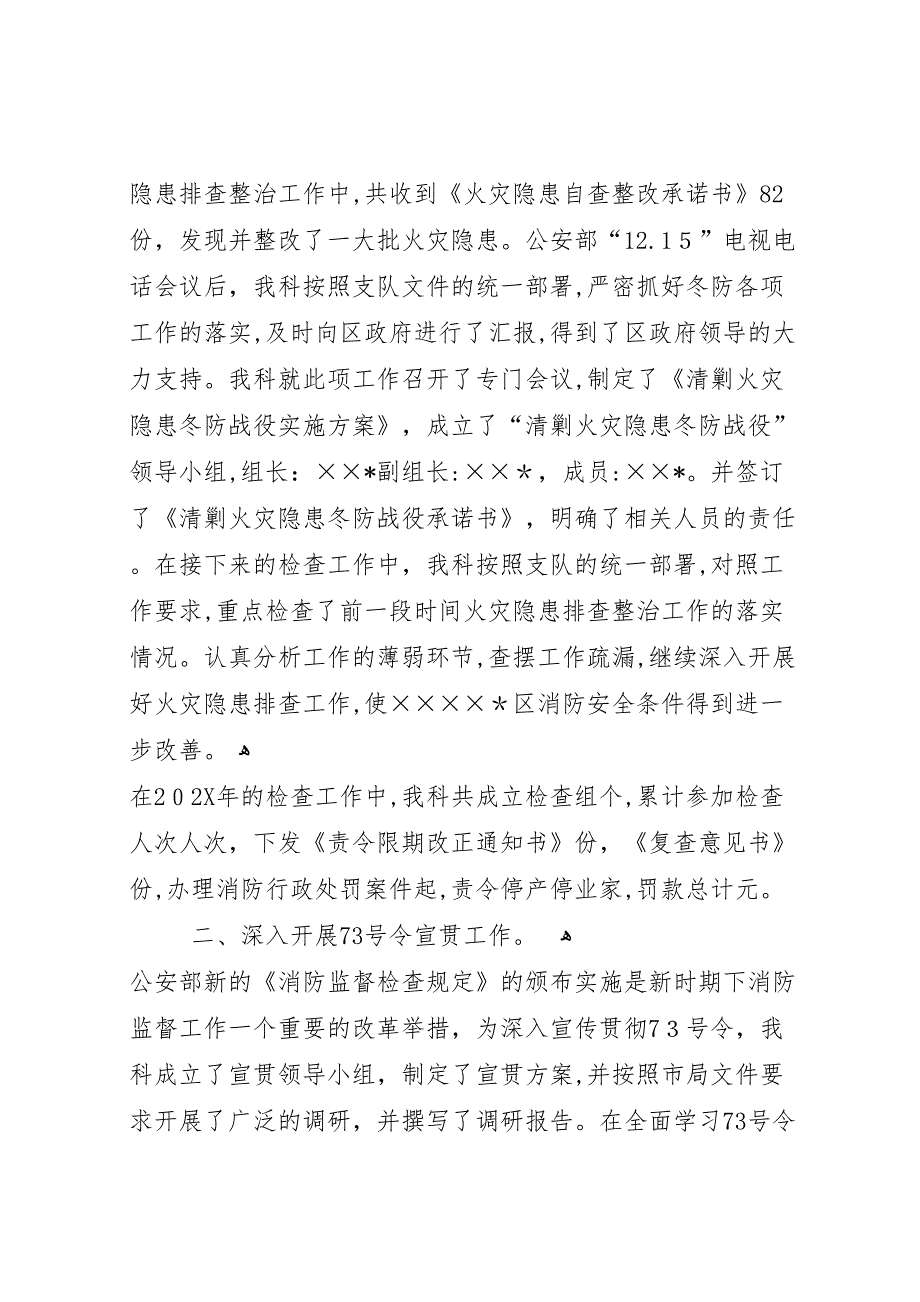 隐患排查整治工作中,共收到《火灾隐患自查整改承诺书》82
份，发现并整改了一大批火灾隐患。公安部“12.1５”电视电
话会议后，我科按照支队文件的统一部署,严密抓好冬防各项
工作的落实,及时向区政府进行了汇报,得到了区政府领导的大
力支持。我科就此项工作召开了专门会议,制定了《清剿火灾
隐患冬防战役实施方案》，成立了“清剿火灾隐患冬防战役”
领导小组,组长：××*副组长:××＊，成员:××*。并签订
了《清剿火灾隐患冬防战役承诺书》，明确了相关人员的责任
。在接下来的检查工作中，我科按照支队的统一部署,对照工
作要求,重点检查了前一段时间火灾隐患排查整治工作的落实
情况。认真分析工作的薄弱环节,查摆工作疏漏,继续深入开展
好火灾隐患排查工作,使××××＊区消防安全条件得到进一
步改善。 ﻫ
在2０2X年的检查工作中,我科共成立检查组个,累计参加检查
人次人次，下发《责令限期改正通知书》份，《复查意见书》
份,办理消防行政处罚案件起,责令停产停业家,罚款总计元。
二、深入开展73号令宣贯工作。 ﻫ
公安部新的《消防监督检查规定》的颁布实施是新时期下消防
监督工作一个重要的改革举措，为深入宣传贯彻7３号令，我
科成立了宣贯领导小组，制定了宣贯方案,并按照市局文件要
求开展了广泛的调研，并撰写了调研报告。在全面学习73号令